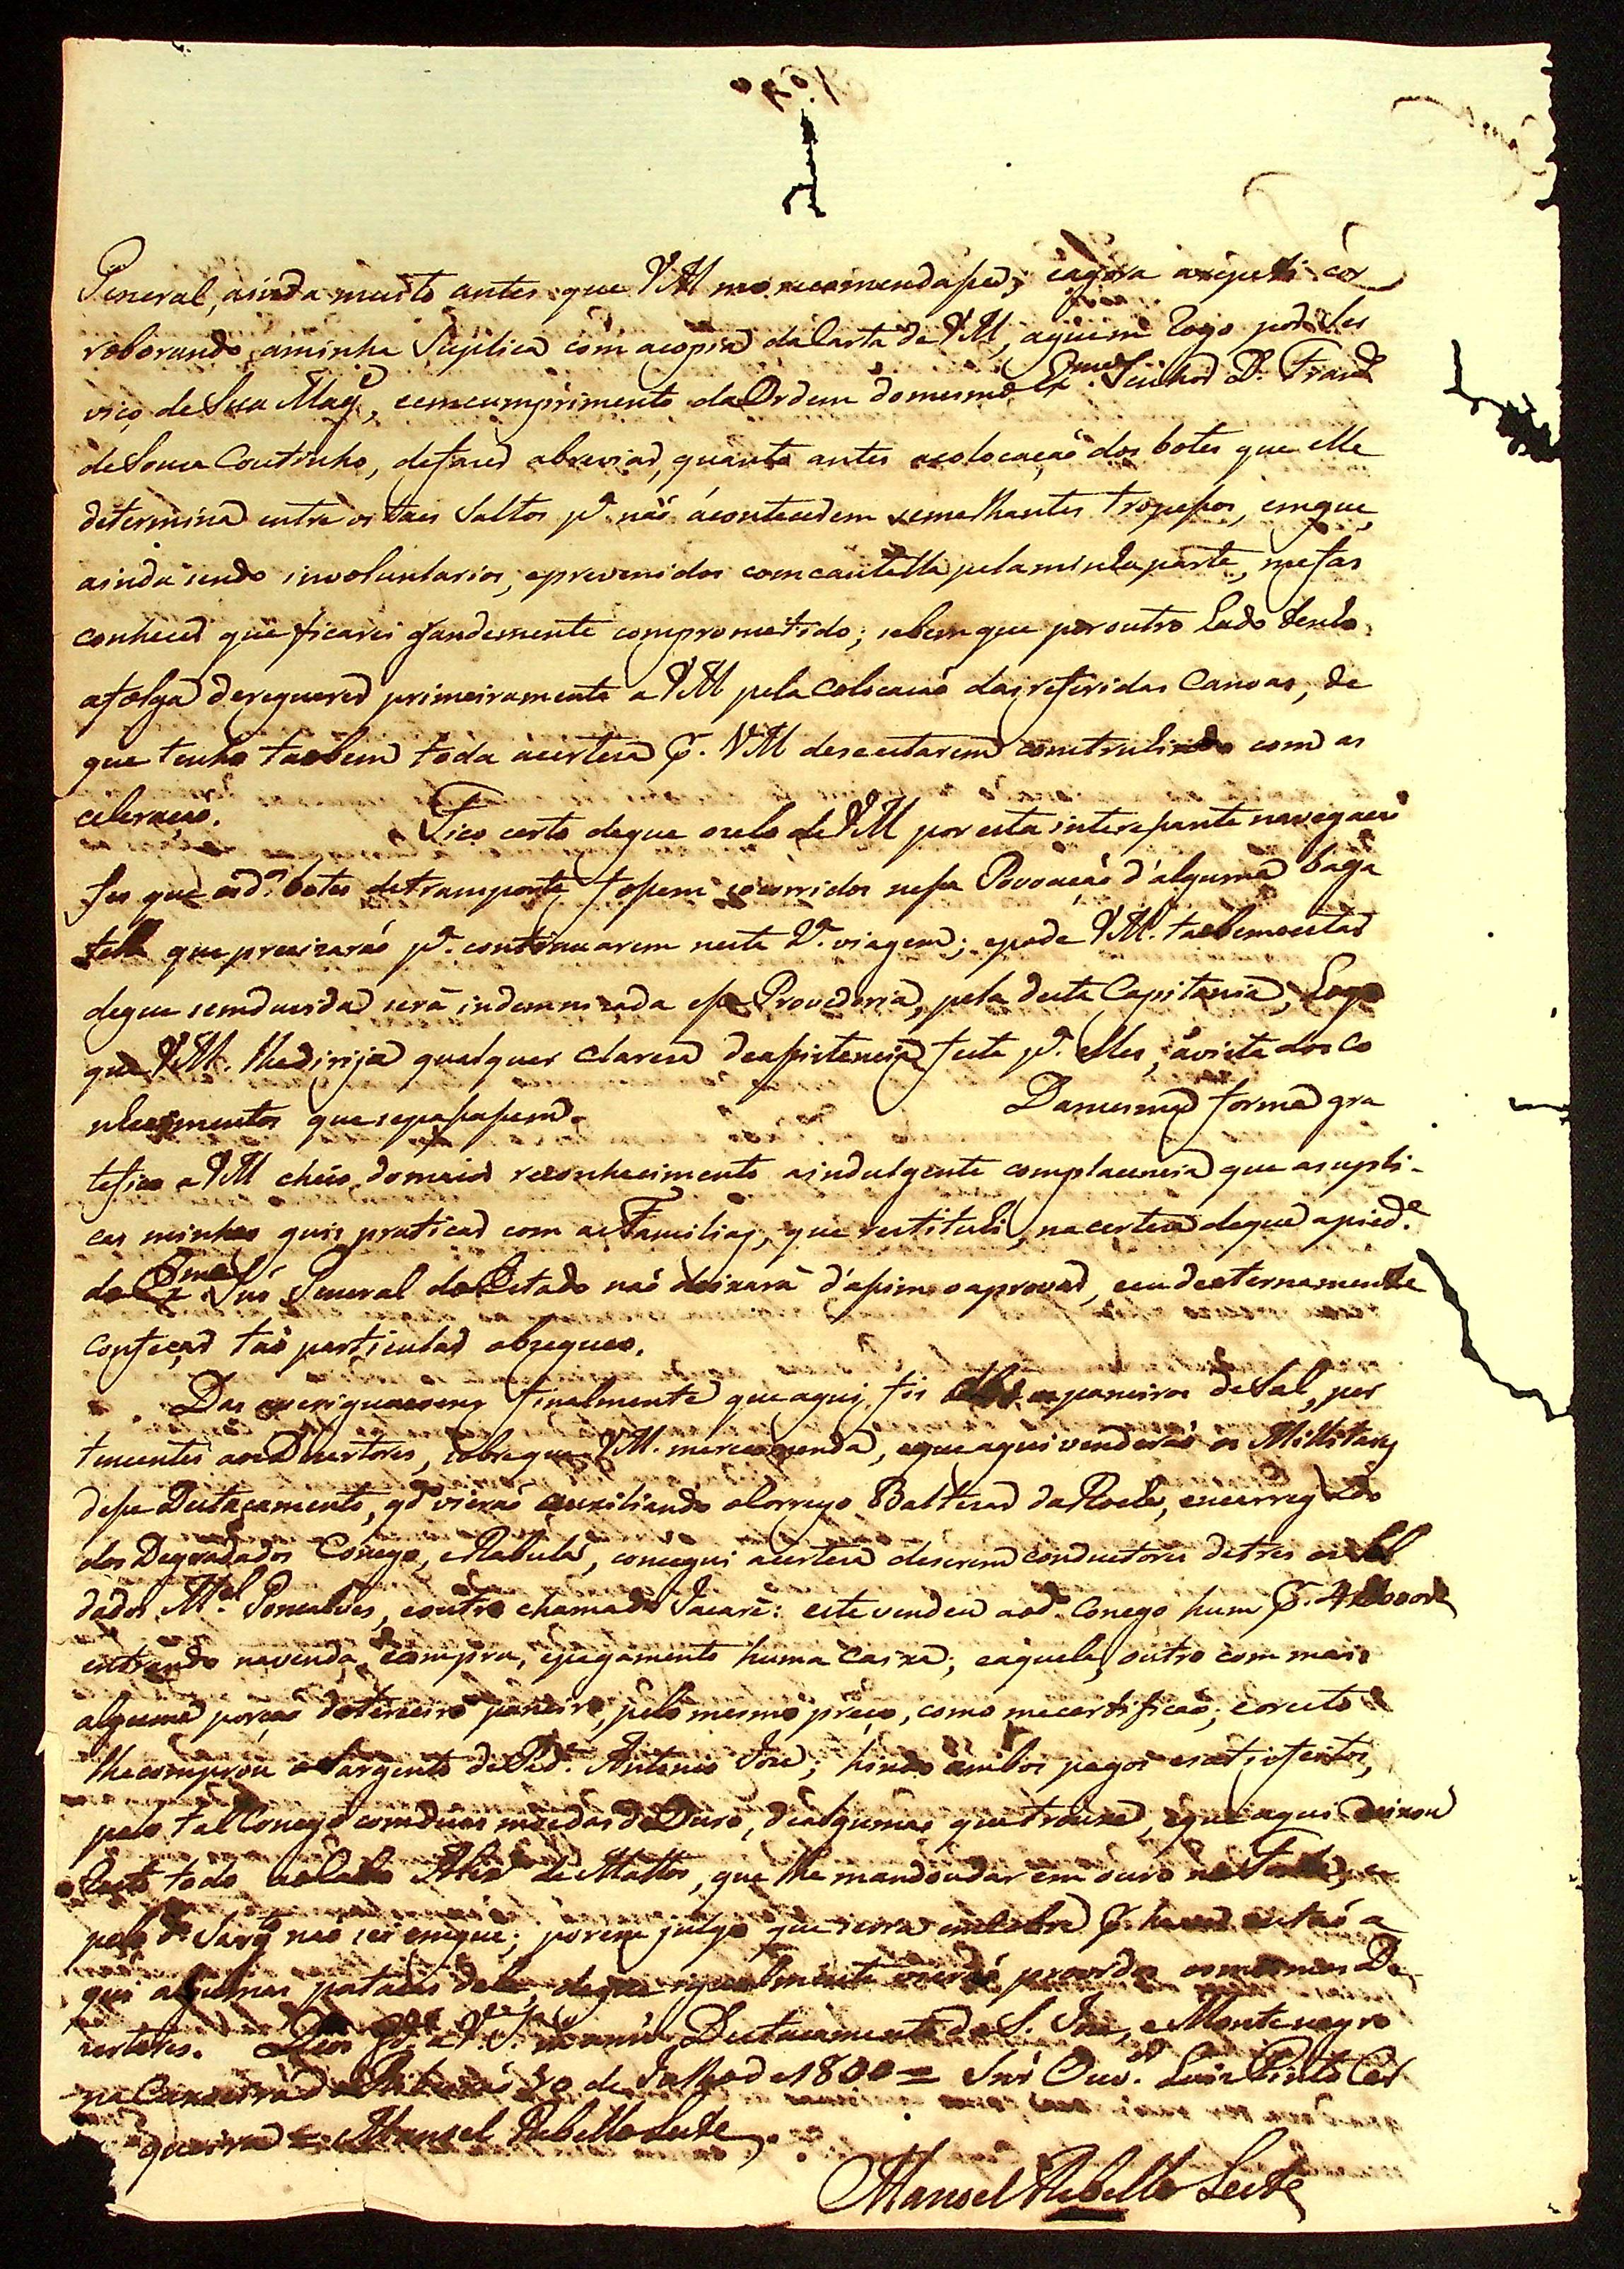 General, ainda muito antes que VM me recomendasse; e agora a repeti cor
roborando aminha Suplica com acopia da Carta de VM, aquem rogo pelo Ser
viço de Sua Mag.e, eemcumprimento da Ordem domesmo Ex.mo Senhor D. Fran.co
deSouza Coutinho, defazer abreviar, quanto antes acolocação dos botes que elle
determina entre os taes Saltos p.a não acontecerem semelhantes tropessos, emque,
ainda sendo involuntarios, eprevenidos comcautella pelaminha parte, mefas
conhecer que ficarei grandemente comprometido; sebem que poroutro lado tenho
afolga derequerer primeiramente a VM pela Colocação dasreferidas Canoas, de
que tenho taobem toda acerteza q. VM deseestarem construhindo com as
celeração. Fico certo deque ozelo de VM por esta interessante navegação
fes que osd.os botes detransporte fossem socorridos nessa Povoação d'alguma baga
tella que precizarão p.a continuarem nesta v.a viagem; epode VM. taobem estar
deque semduvida será indemnizada essa Provedoria, pela desta Capitania, Logo
que VM. lhedirija qualquer clareza deassistencia feita p.a elles, ávista dos co
nhecimentos que sepassassem. Damesma forma gra
tefico a VM cheio domaior reconhecimento aindulgente complacencia que assupli-
cas minhas quis praticar com as Familias, que restituhi, nacerteza deque apied.e
do Ex.mo Snr General do Estado não deixará d'assim o aprovar, eeu deeternamente
confeçar tão particular obzequeo.
Das averiguaçoens finalmente que aqui fis dos paneiros deSal, per
tencentes aosDezertores, sobreque VM. merecomenda, equeaqui venderão os Millitares
desse Destacamento, q.do vierão auxiliando oCorrego Baltezar daRocha, encarregado
dos Degradados Conego, eRabula, consegui acerteza deserem conductores detres os Sol
dados M.el Gonçalves, eoutro chamado Jacaré: este vendeu aod.o Conego hum q.
entrando navenda, ecompra, epagamento huma Caixa; eaquele, outro com mais
alguma porção doterceiro paneiro, pelo mesmo preço, como mecertificão; eoresto
lhecomprou o Sargento dePed.es Antonio Joze; hindo ambos pagos esatisfeitos,
pelo tal Conego comduas moedas deOuro, dealgumas quetrouxe, eque aqui deixou
resto todo aoCabo de Mattos, que lhe mandou dar em ouro no
pelo d.o Sarg.to não sei emque; porem julgo que seria emcobre q. haver então a
qui algumas patacas dele, deque igualmente virão providos osmesmos De
zertores. Deos g.de a V.S. m.s an.s Destacamento de S. Joze, eMontenegro
na 20 de Julho de 1800 = Snr Ouv.or Luis Pinto Cer
queira = Manoel Rebello Leite.
Manoel Rebello Leite